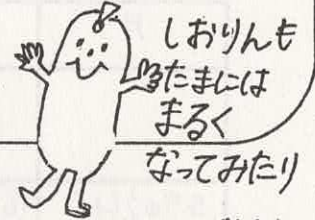 しおりんも
たまには
まるく
なってみたり